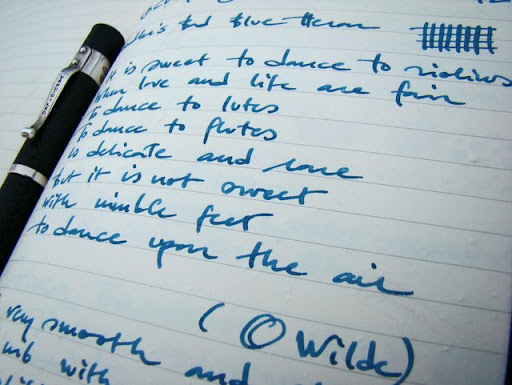 Blue-Heron
it is sweet to dance to violins
when love and life are fair
to dance to lutes
to dance to flutes
is delicate and rare
but it is not sweet
with nimble feet
to dance upon the air
(© Wilde)
very smooth and
with